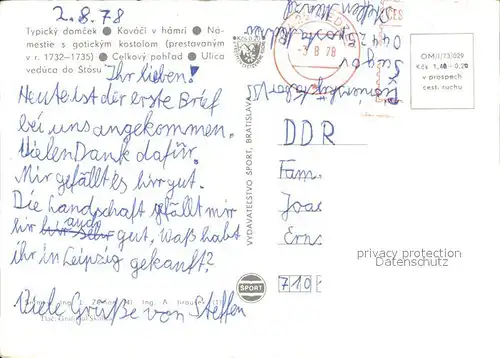 2.8.78
Typický domček ● Kováči v hámri ● Ná-
mestie s gotickým kostolom (prestavaným
v r. 1732–1735) ● Celkový pohľad ● Ulica
vedúca do Štósu
Ihr lieben!
Heute ist der erste Brief
bei uns angekommen.
Vielen Dank dafür.
Mir gefällt es hirr gut.
Die Landschaft gefällt mir
hir auch gut, Waß habt
ihr in Leipzig gekauft?
Viele Grüße von Steffen
VYDAVATEĽSTVO ŠPORT, BRATISLAVA
ŠPORT
Kčs 0,20
-3.8.78
Steffen
044
OMJI/73/029
Kčs 1,40 – 0,20
v prospech
cest. ruchu
DDR
Fam.
Joac
Ern
710
privacy protection
Datenschutz